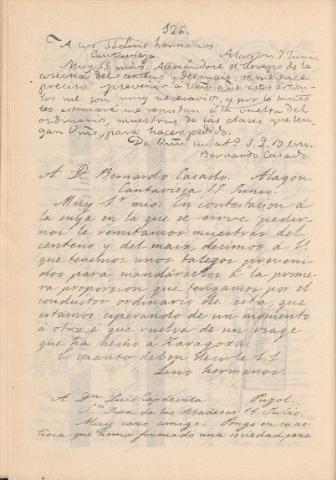 126.
A los SS Lino hermanos
Cantavieja. Alagon 7 Junio
Muy SS mios: Acercándose el tiempo de la
cosecha del centeno y del maiz, se me hace
preciso prevenir a Vms que estos artícu-
los me son muy necesarios, y por lo tanto
les estimaré me remitan a la vuelta del
ordinario, muestras de las clases que ten-
gan Vms, para hacer pedido.
De Vms su at.º S. Q. B. s. m.
Bernardo Casado
A D. Bernardo Casado. Alagon.
Cantavieja 17 Junio.
Muy Sr mio: En contestacion á
la suya en la que se sirve pedir-
nos le remitamos muestras del
centeno y del maiz, decimos á V.
que tenemos unos talegos preveni-
dos para mandárselos á la prime-
ra proporcion que tengamos por el
conductor ordinario de esta, que
estamos esperando de un momento
á otro á que vuelva de un viage
que ha hecho á Zaragoza.
Es cuanto deben decirle S. S.
Lino hermanos.
A Dn Luis Capdevila. Puzol.
Sn Juan de las Abadesas 14 Julio.
Muy caro amigo: Pongo en su no-
ticia que hemos formado una sociedad para